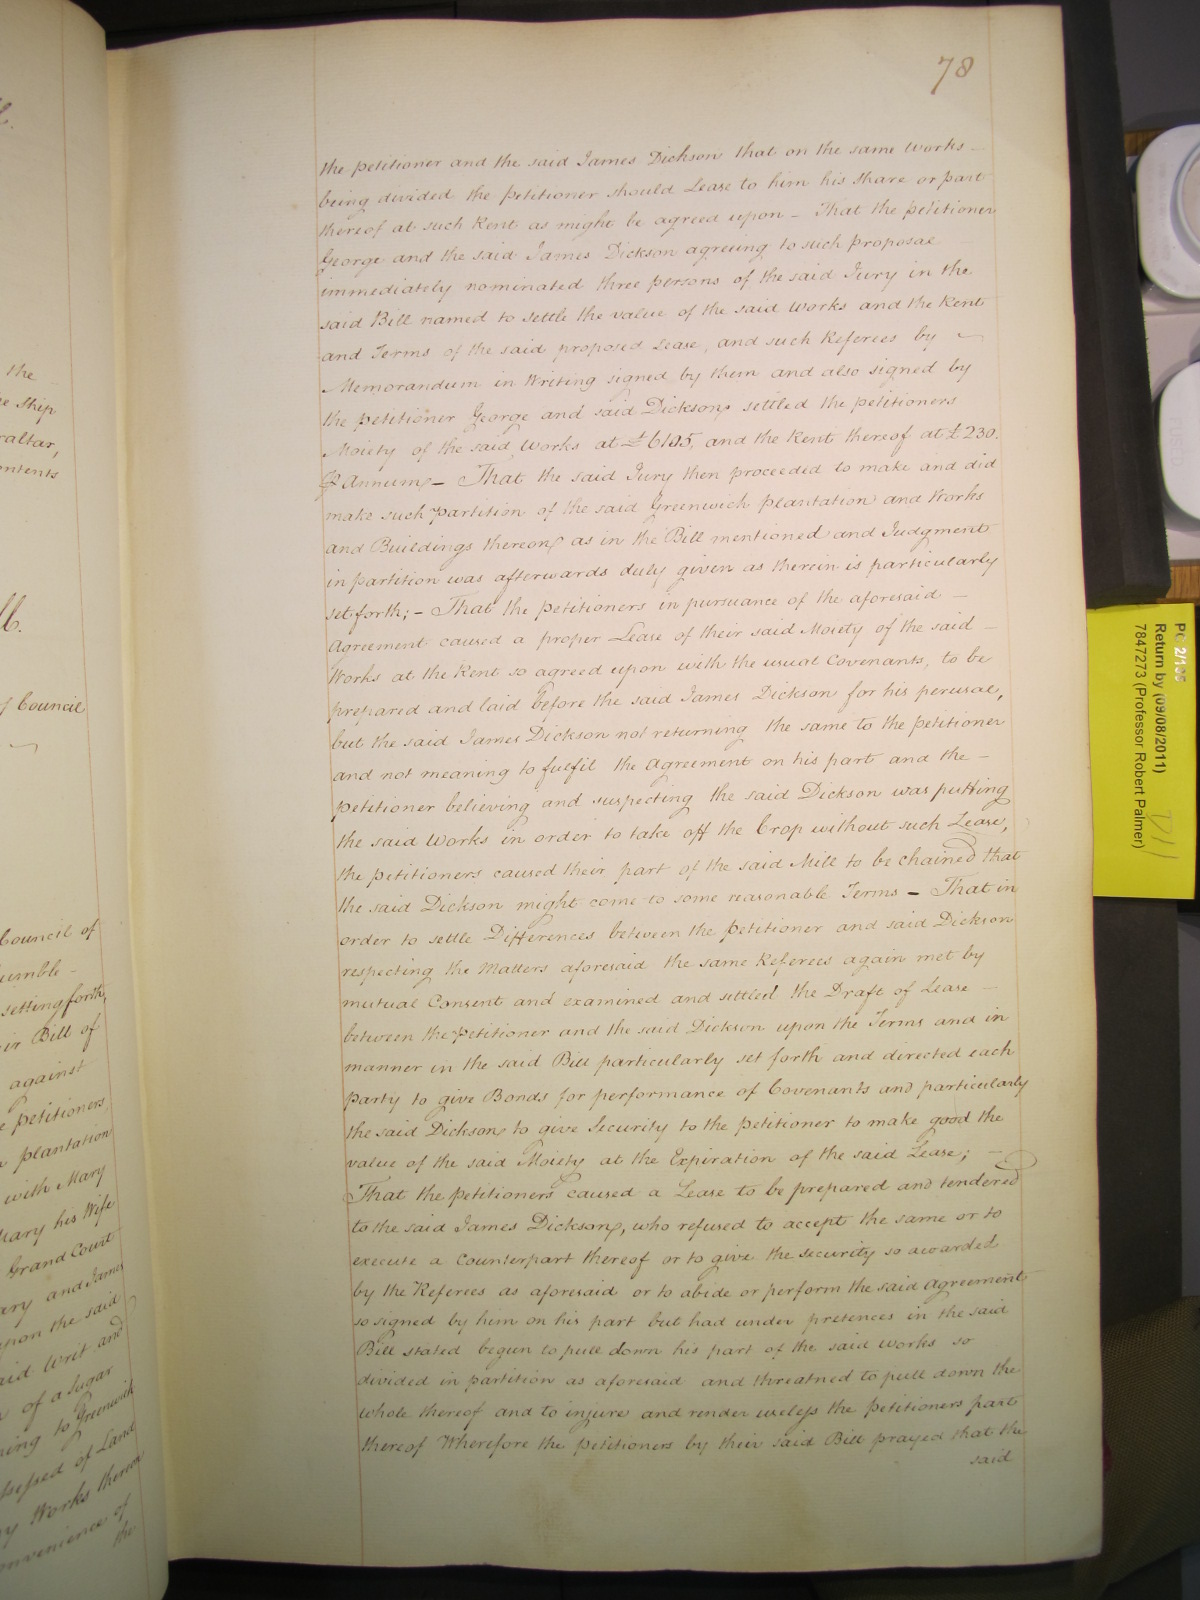 78
the petitioner and the said James Dickson that on the same works
being divided the petitioner should Lease to him his share or part
thereof at such Rent as might be agreed upon – That the petitioner
George and the said James Dickson agreeing to such proposal
immediately nominated three persons of the said Jury in the
said Bill named to settle the value of the said works and the Rent
and Terms of the said proposed Lease, and such Referees by
Memorandum in Writing signed by them and also signed by
the petitioner George and said Dickson settled the petitioners
Moiety of the said works at £6105, and the Rent thereof at £230.
P Annum – That the said Jury then proceeded to make and did
make such Partition of the said Greenwich plantation and Works
and Buildings thereon as in the Bill mentioned and Judgment
in partition was afterwards duly given as therein is particularly
set forth; – That the petitioners in pursuance of the aforesaid –
Agreement caused a proper Lease of their said Moiety of the said –
Works at the Rent so agreed upon with the usual Covenants, to be
prepared and laid before the said James Dickson for his perusal,
but the said James Dickson not returning the same to the petitioner
and not meaning to fulfil the Agreement on his part and the –
petitioner believing and suspecting the said Dickson was putting
the said works in order to take off the Crop without such Lease,
the petitioners caused their part of the said Mill to be chained that
the said Dickson might come to some reasonable Terms – That in
order to settle Differences between the petitioner and said Dickson
respecting the Matters aforesaid the same Referees again met by
mutual Consent and examined and settled the Draft of Lease –
between the Petitioner and the said Dickson upon the Terms and in
manner in the said Bill particularly set forth and directed each
party to give Bonds for performance of Covenants and particularly
the said Dickson to give Security to the petitioner to make good the
value of the said Moiety at the Expiration of the said Lease; –
That the petitioners caused a Lease to be prepared and tendered
to the said James Dickson, who refused to accept the same or to
execute a Counterpart thereof or to give the security so awarded
by the Referees as aforesaid or to abide or perform the said Agreement
so signed by him on his part but had under pretences in the said
Bill stated begun to pull down his part of the said works so
divided in partition as aforesaid and threatned to pull down the
whole thereof and to injure and render useless the petitioners part
thereof Wherefore the petitioners by their said Bill prayed that the
said
the
ship
raltar,
ontents
Council
Council of
umble –
setting forth,
Bill of
against
petitioners
plantation
with Mary
Mary his Wife
Grand Court
and James
upon the said
said Writ and
of a Sugar
to Greenwich
of Land
Works thereon
onvenience of
the
PC 2/135
Return by (09/08/2011)
7847273 (Professor Robert Palmer)